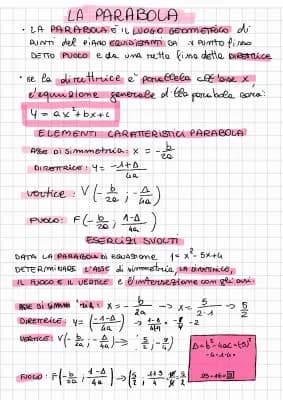 LA PARABOLA
• LA PARABOLA È IL LUOGO GEOMETRICO di
PUNTI del PIANO EQUIDISTANTI DA 1 PUNTO fisso
DETTO FUOCO e da una retta fissa detta DIRETTRICE
• se la direttrice è parallela all'asse x,
l'equazione generale della parabola sarà:
y = ax²+bx+c
ELEMENTI CARATTERISTICI PARABOLA
ASSE DI Simmetria: x = -b/2a
DIRETTRICE: y = -1+Δ/4a
vertice: V(-b/2a ; -Δ/4a)
FUOCO: F(-b/2a ; 1-Δ/4a)
ESERCIZI SVOLTI
DATA LA PARABOLA DI EQUAZIONE y=x²-5x+4
DETERMINARE L'ASSE di simmetria, LA DIRETTRICE,
IL FUOCO E IL VERTICE e l'intersezione con gli assi.
ASSE DI SIMM x = -b/2a → x = 5/2·1 → 5/2
DIRETTRICE: y = (-1-Δ/4a) →
VERTICE: V(-b/2a ; -Δ/4a) → (5/2 ; -9/4)
Δ=b²-4ac=(-5)²
-4·1·4=
25-16=9
FUOCO: F(-b/2a ; 1-Δ/4a) →